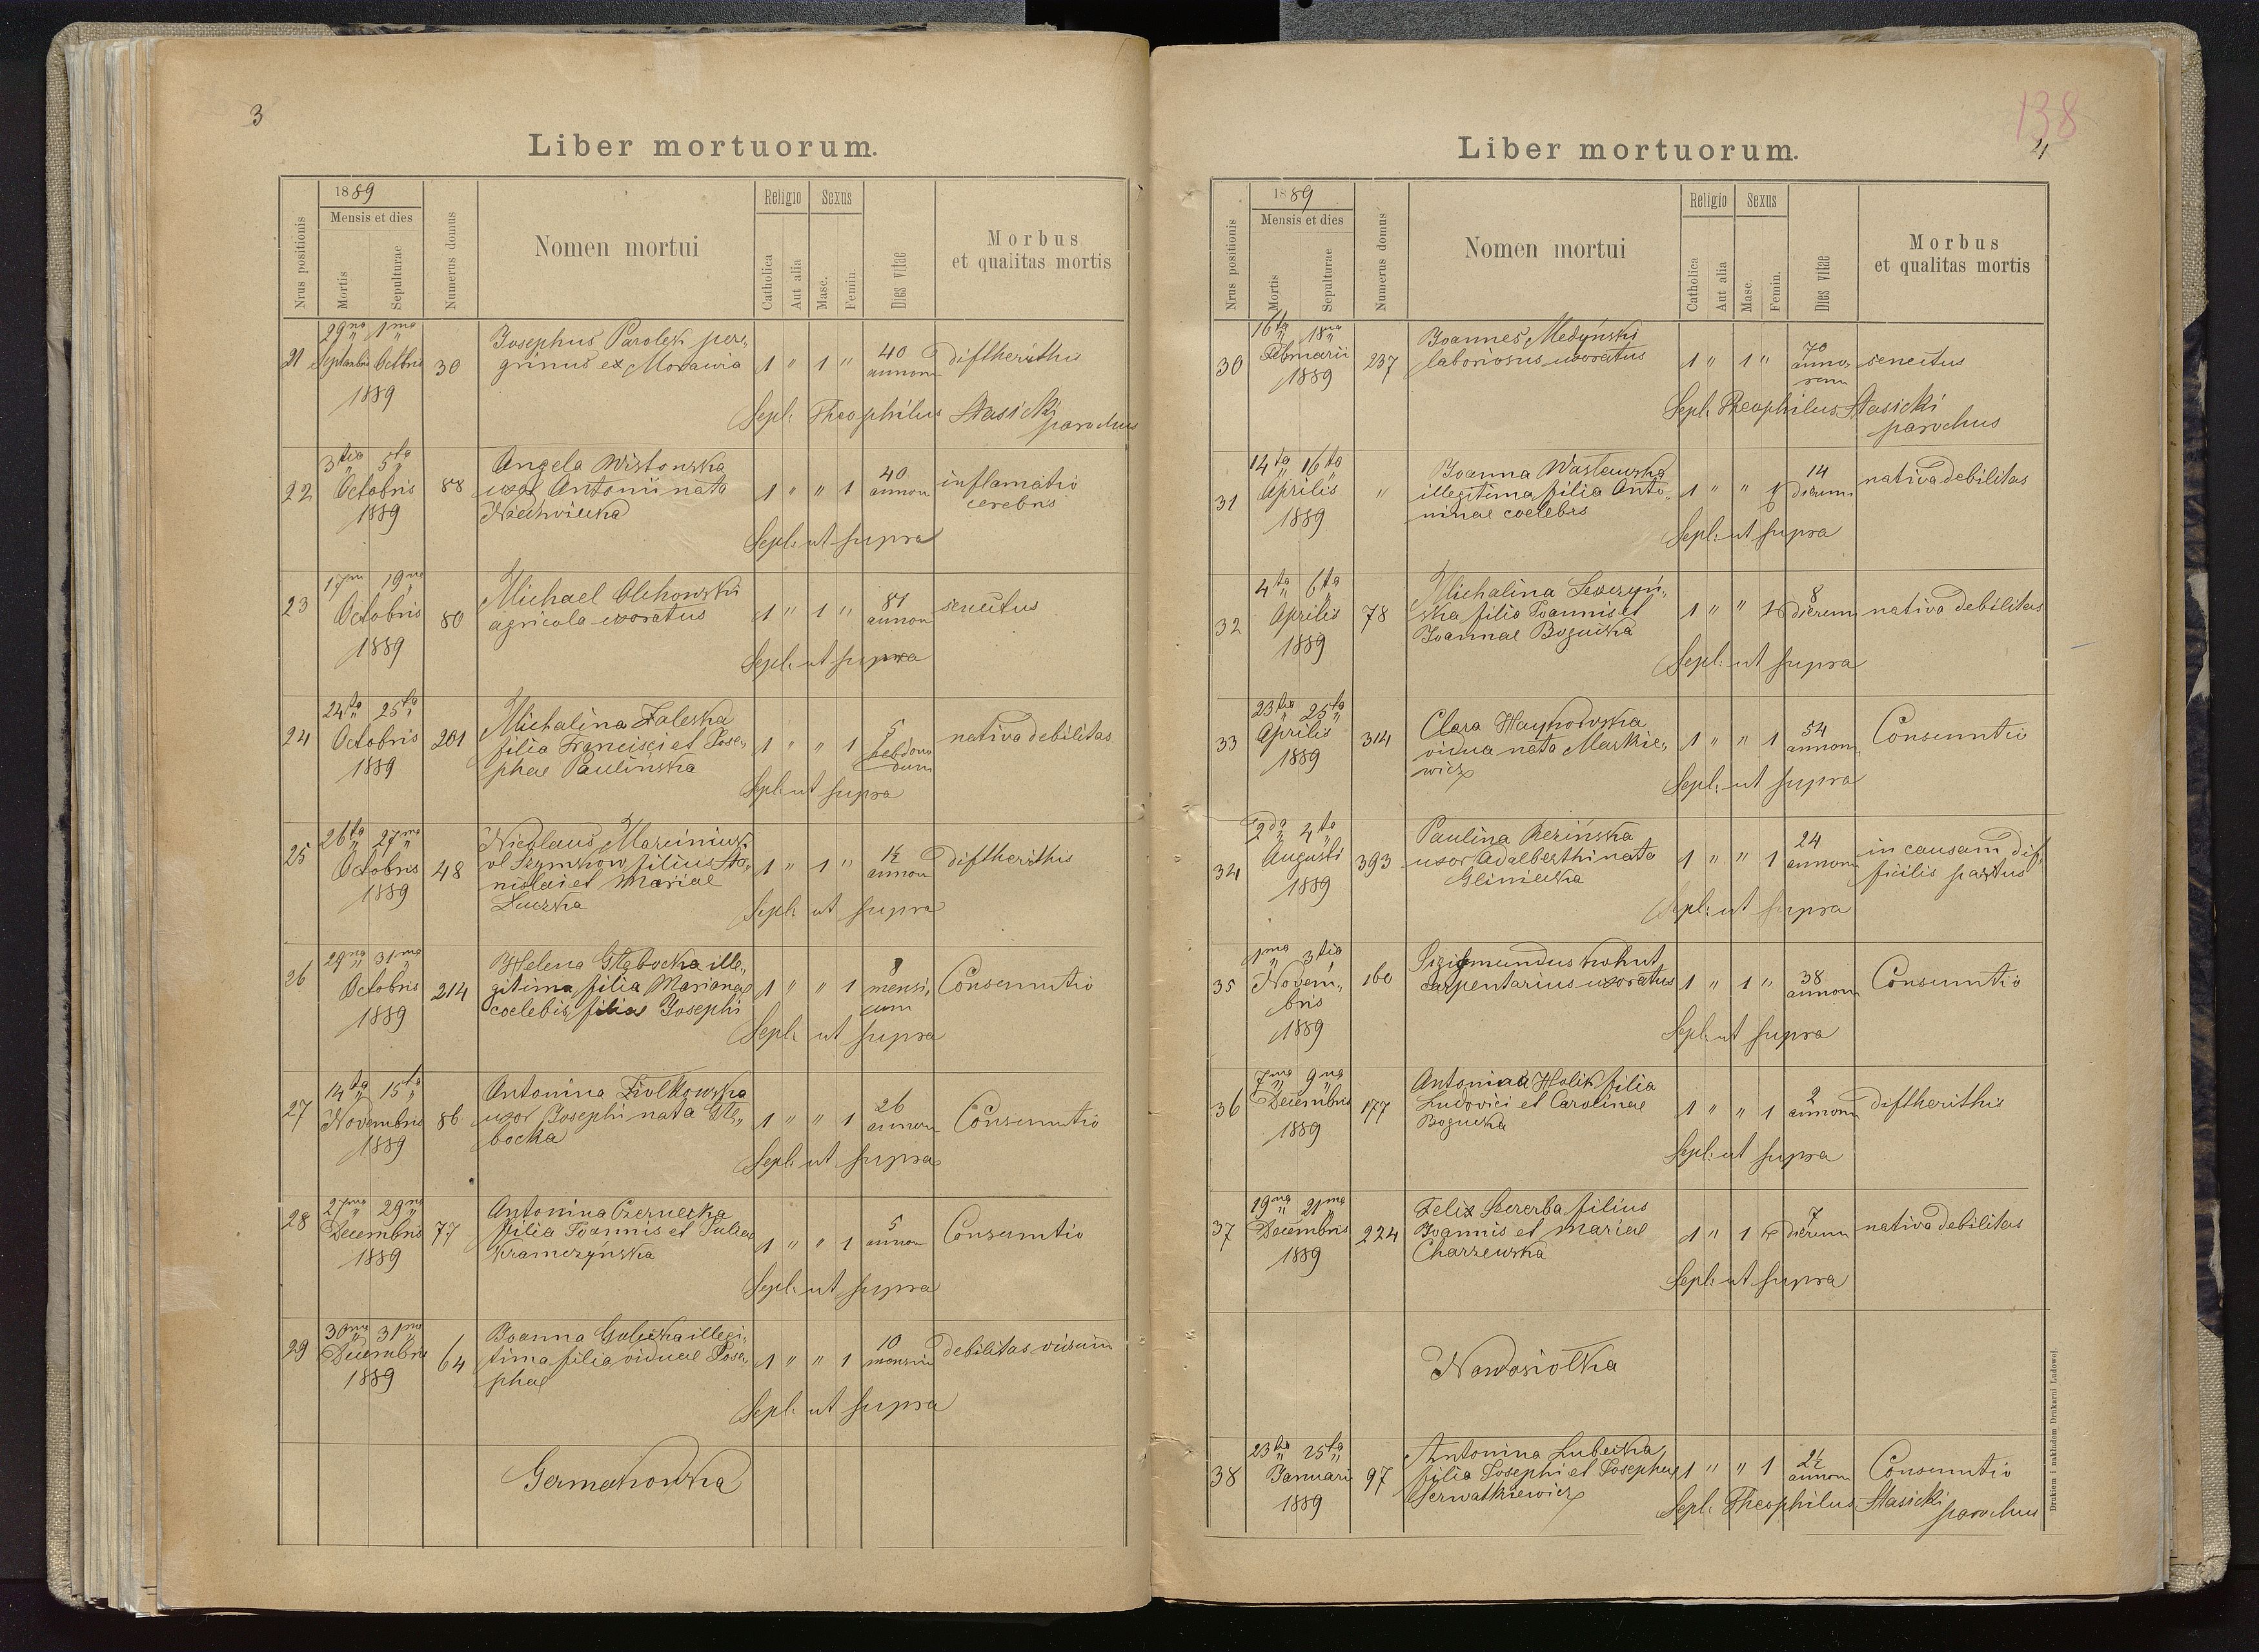 3
Liber mortuorum.
Nrus positionis
1889
Mensis et dies
Mortis
Sepulturae
Numerus domus
Nomen mortui
Religio
Catholica
Aut alia
Sexus
Masc.
Femin.
Dies vitae
Morbus
et qualitas mortis
21 29na 1ma Septembris Octbris 1889 30
Josephus Parolek pere„
grinus ex Morawia
1 " 1 " 40 annorum diftherithis
Sepl: Theophilus Stasicki
parochus
22 3tia 5ta Octobris 1889 88
Angela Wistonska
uxor Antonii nata
Niedzwiecka
1 " " 1 40 annorum inflamatio
cerebris
Sepl: ut supra
23 17ma 19na Octobris 1889 80
Michael Olchowski
agricola uxoratus
1 " 1 " 81 annorum senectus
Sepl: ut supra
24 24ta 25ta Octobris 1889 201
Michalina Zaleska
filia Francisci et Jose„
phae Paulińska
1 " " 1 5 hebdoma
dum nativa debilitas
Sepl: ut supra
25 26ta 27ma Octobris 1889 48
Nicolaus Marciniuk
vl Szymkow filius Sta„
nislai et Mariae
Luczka
1 " 1 " 1½ annorum diftherithis
Sepl: ut supra
26 29na 31ma Octobris 1889 214
Helena Głębocka ille„
gitima filia Marianae
coelebis, filiae Josephi
1 " " 1 8 mensi„
um Consumtio
Sepl: ut supra
27 14ta 15ta Novembris 1889 86
Antonina Ziolkowska
uxor Josephi nata Głę„
bocka
1 " " 1 26 annorum Consumtio
Sepl: ut supra
28 27ma 29na Decembris 1889 77
Antonina Czernecka
filia Joannis et Juliae
Kramczynska
1 " " 1 5 annorum Consumtio
Sepl: ut supra
29 30ma 31ma Decembris 1889 64
Joanna Golecka illegi„
tima filia viduae Jose„
phae
1 " " 1 10 mensium debilitas
Sepl: ut supra
Germakowka
138
4
Liber mortuorum.
Nrus positionis
1889
Mensis et dies
Mortis
Sepulturae
Numerus domus
Nomen mortui
Religio
Catholica
Aut alia
Sexus
Masc.
Femin.
Dies vitae
Morbus
et qualitas mortis
30 16ta 18na Februarii 1889 237
Joannes Medyński
laboriosus uxoratus
1 " 1 " 70 anno
rum senectus
Sepl: Theophilus Stasicki
parochus
31 14ta 16ta Aprilis 1889 "
Joanna Wasławska
illegitima filia Anto„
ninae coelebis
1 " " 1 14 dierum nativa debilitas
Sepl: ut supra
32 4ta 6ta Aprilis 1889 78
Michalina Leszczyń„
ska filia Joannis et
Joannae Bogucka
1 " " 1 8 dierum nativa debilitas
Sepl: ut supra
33 23tia 25ta Aprilis 1889 314
Clara Haykowska
vidua nata Markie„
wicz
1 " " 1 54 annorum Consumtio
Sepl: ut supra
34 2da 4ta Augusti 1889 393
Paulina Rezińska
uxor Adalberthi nata
Gliniecka
1 " " 1 24 annorum in causam dif„
ficilis partus
Sepl: ut supra
35 1ma 3tia Novem„
bris 1889 160
Sigigmundus Kohut
carpentarius uxoratus
1 " 1 " 38 annorum Consumtio
Sepl: ut supra
36 7ma 9na Decembris 1889 177
Antonina Holik filia
Ludovici et Carolinae
Bogucka
1 " " 1 2 annorum diftherithis
Sepl: ut supra
37 19na 21ma Decembris 1889 224
Felix Szczerba filius
Joannis et Mariae
Charzewska
1 " 1 7 dierum nativa debilitas
Sepl: ut supra
Nowosiołka
38 23tia 25ta Januarii 1889 97
Antonina Lubecka
filia Josephi et Josephae
Serwatkiewicz
1 " " 1 2½ annorum Consumtio
Sepl: Theophilus Stasicki
parochus
Drukiem i nakładem Drukarni Ludowej.